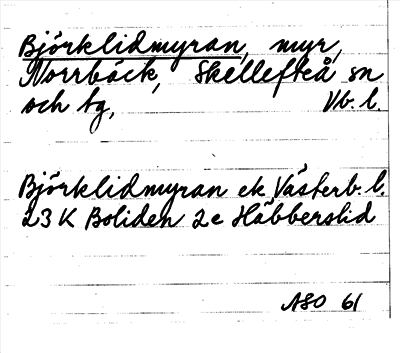 Björklidmyran, myr,
Norrbäck, Skellefteå sn
och tg, Vb. l.
Björklidmyran ek Västerb. l.
23 K Boliden 2c Häbberslid
ASO 61